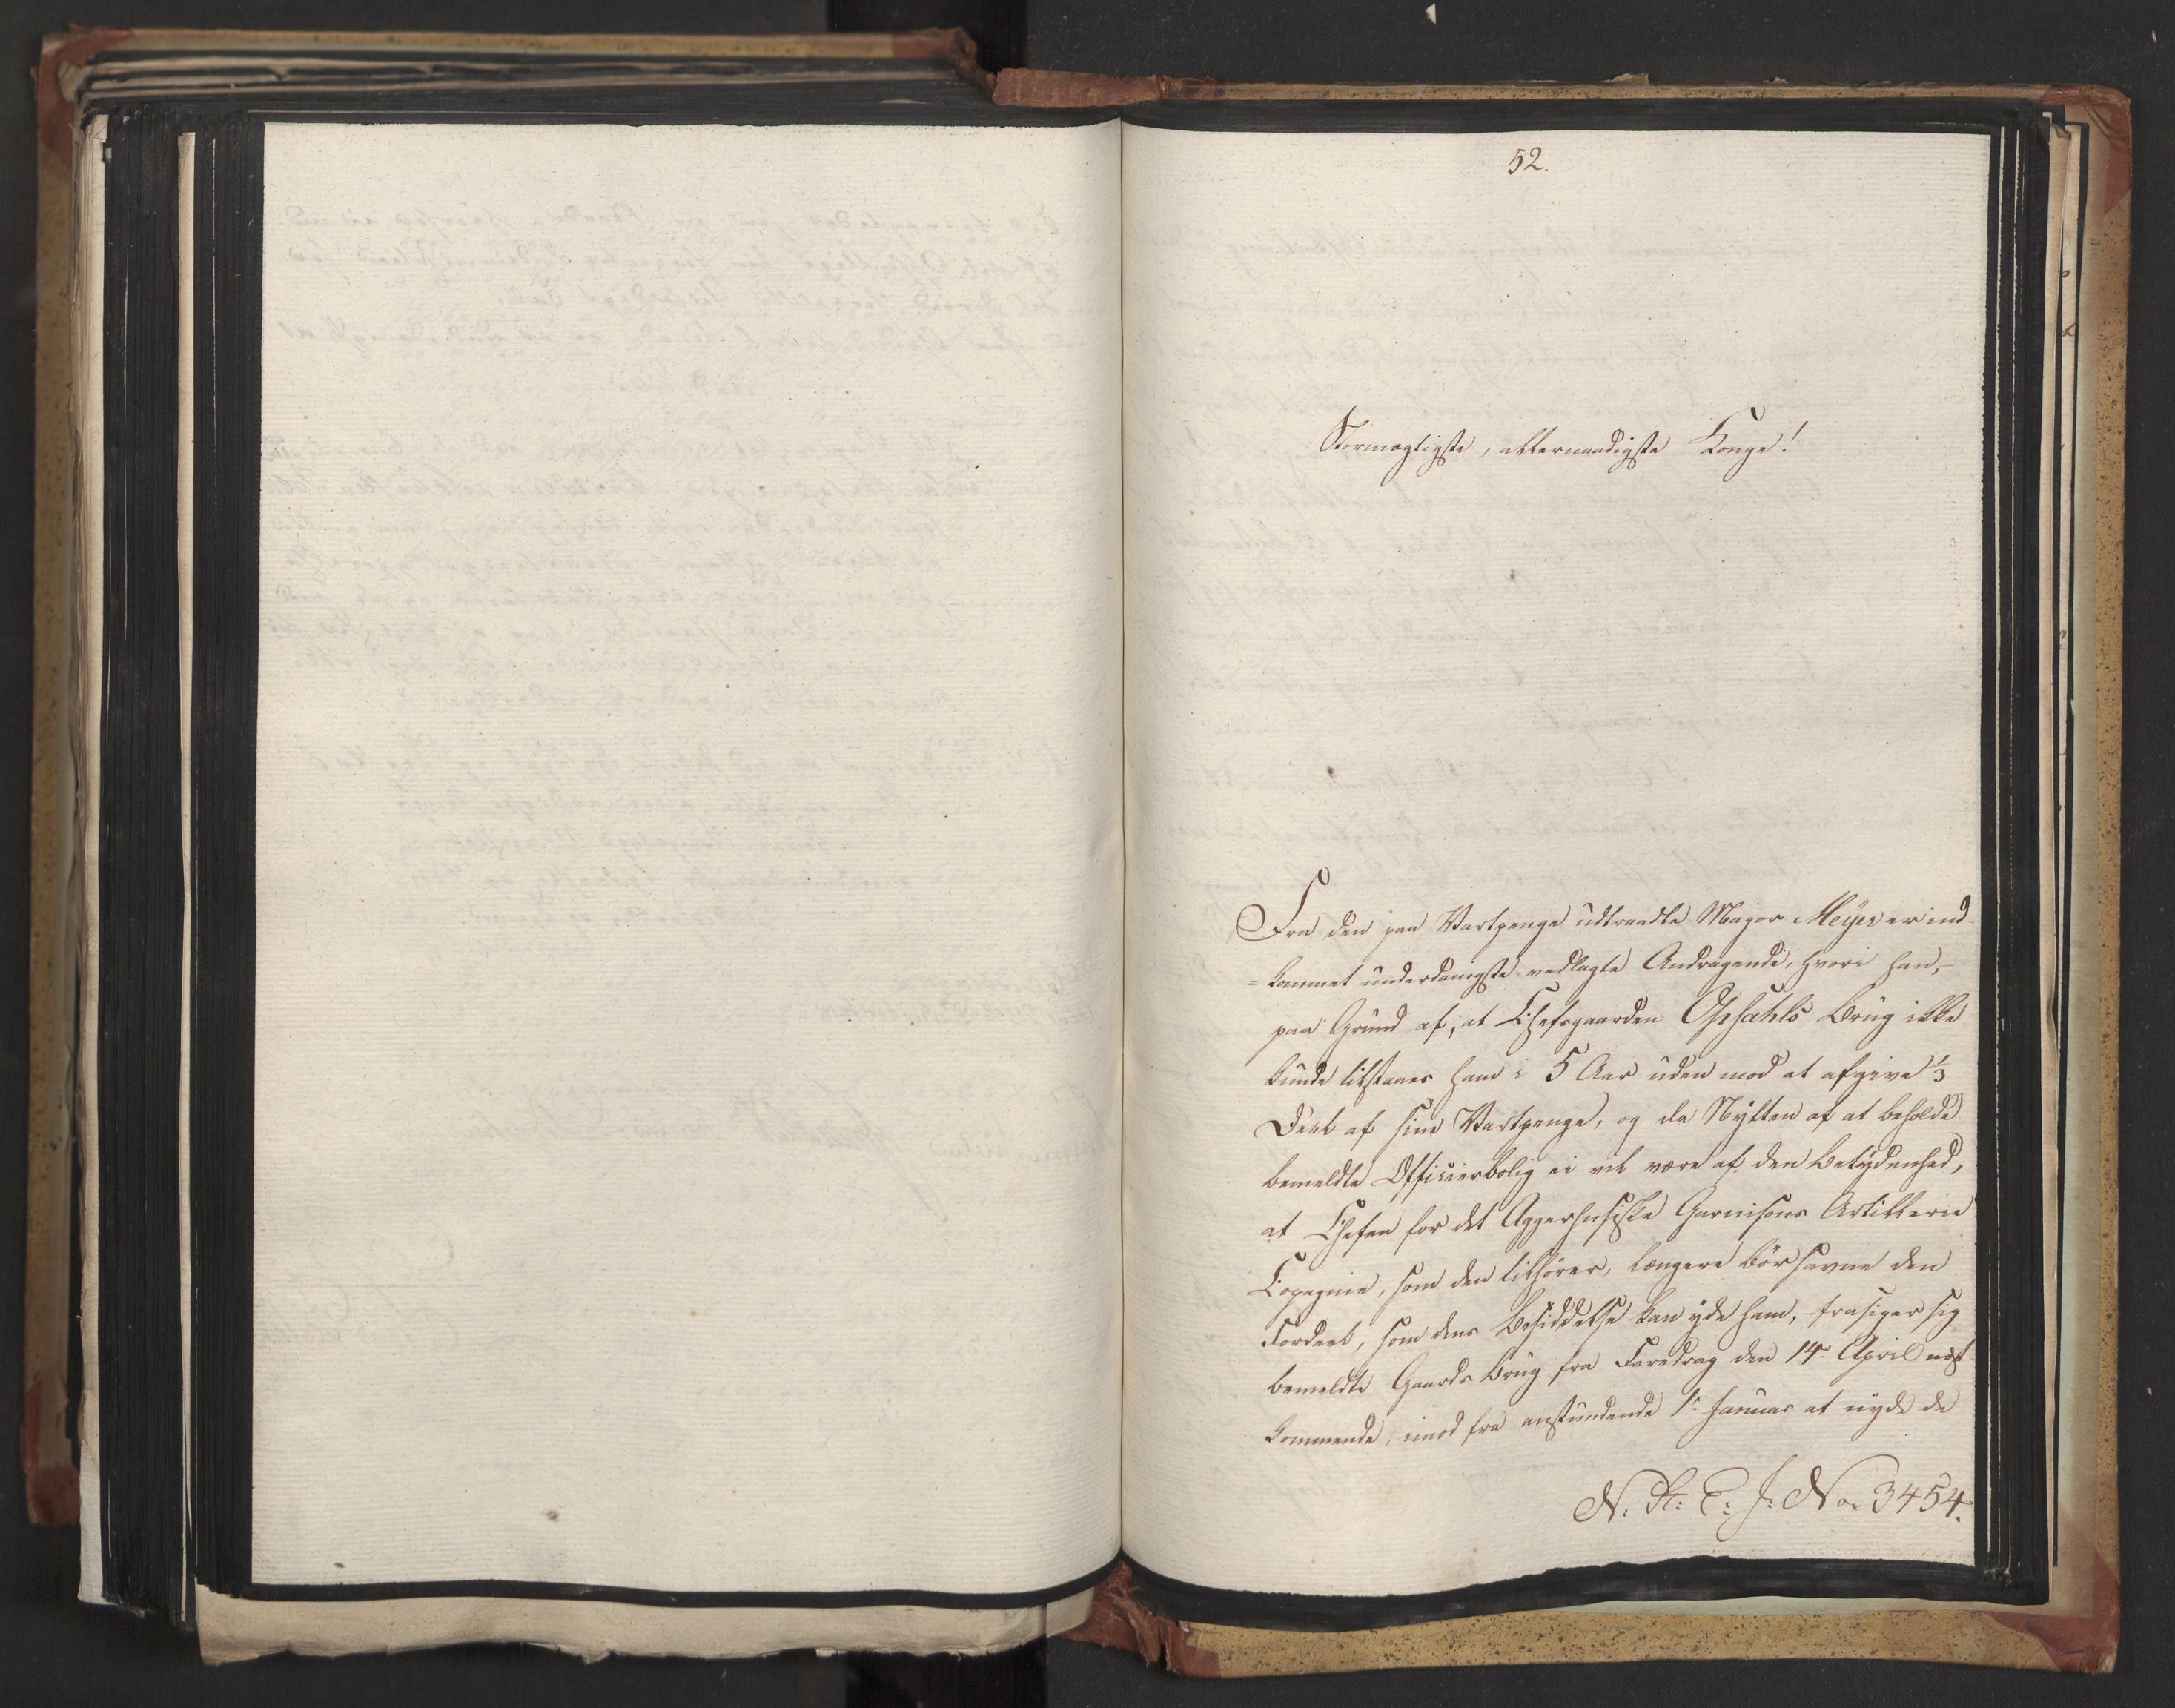 52.
Stormægtigste, allernaadigste Konge!
Fra den paa Vartpenge udtraadte Major Meyer er ind-
=kommet underdanigste vedlagte Andragende, hvori han,-
paa Grund af, at Chefsgaarden Opsahls Brug ikke
kunde tilstaaes ham i 5 Aar uden mod at afgive 1/3
Deel af sine Vartpenge, og da Nytten af at beholde
bemeldte Officierbolig ei vil være af den Betydenhed,
at Chefen for det Aggerhusiske Garnisons Artillerie
Copagnie, som den tilhører, længere bör savne den
Fordeel, som dens Besiddelse kan yde ham, frasiger sig
bemeldte Gaards Brug fra Faredag den 14de April næst
kommende, imod fra anstundende 1ste Januar at nyde de
N. St: E: J: No: 3454.